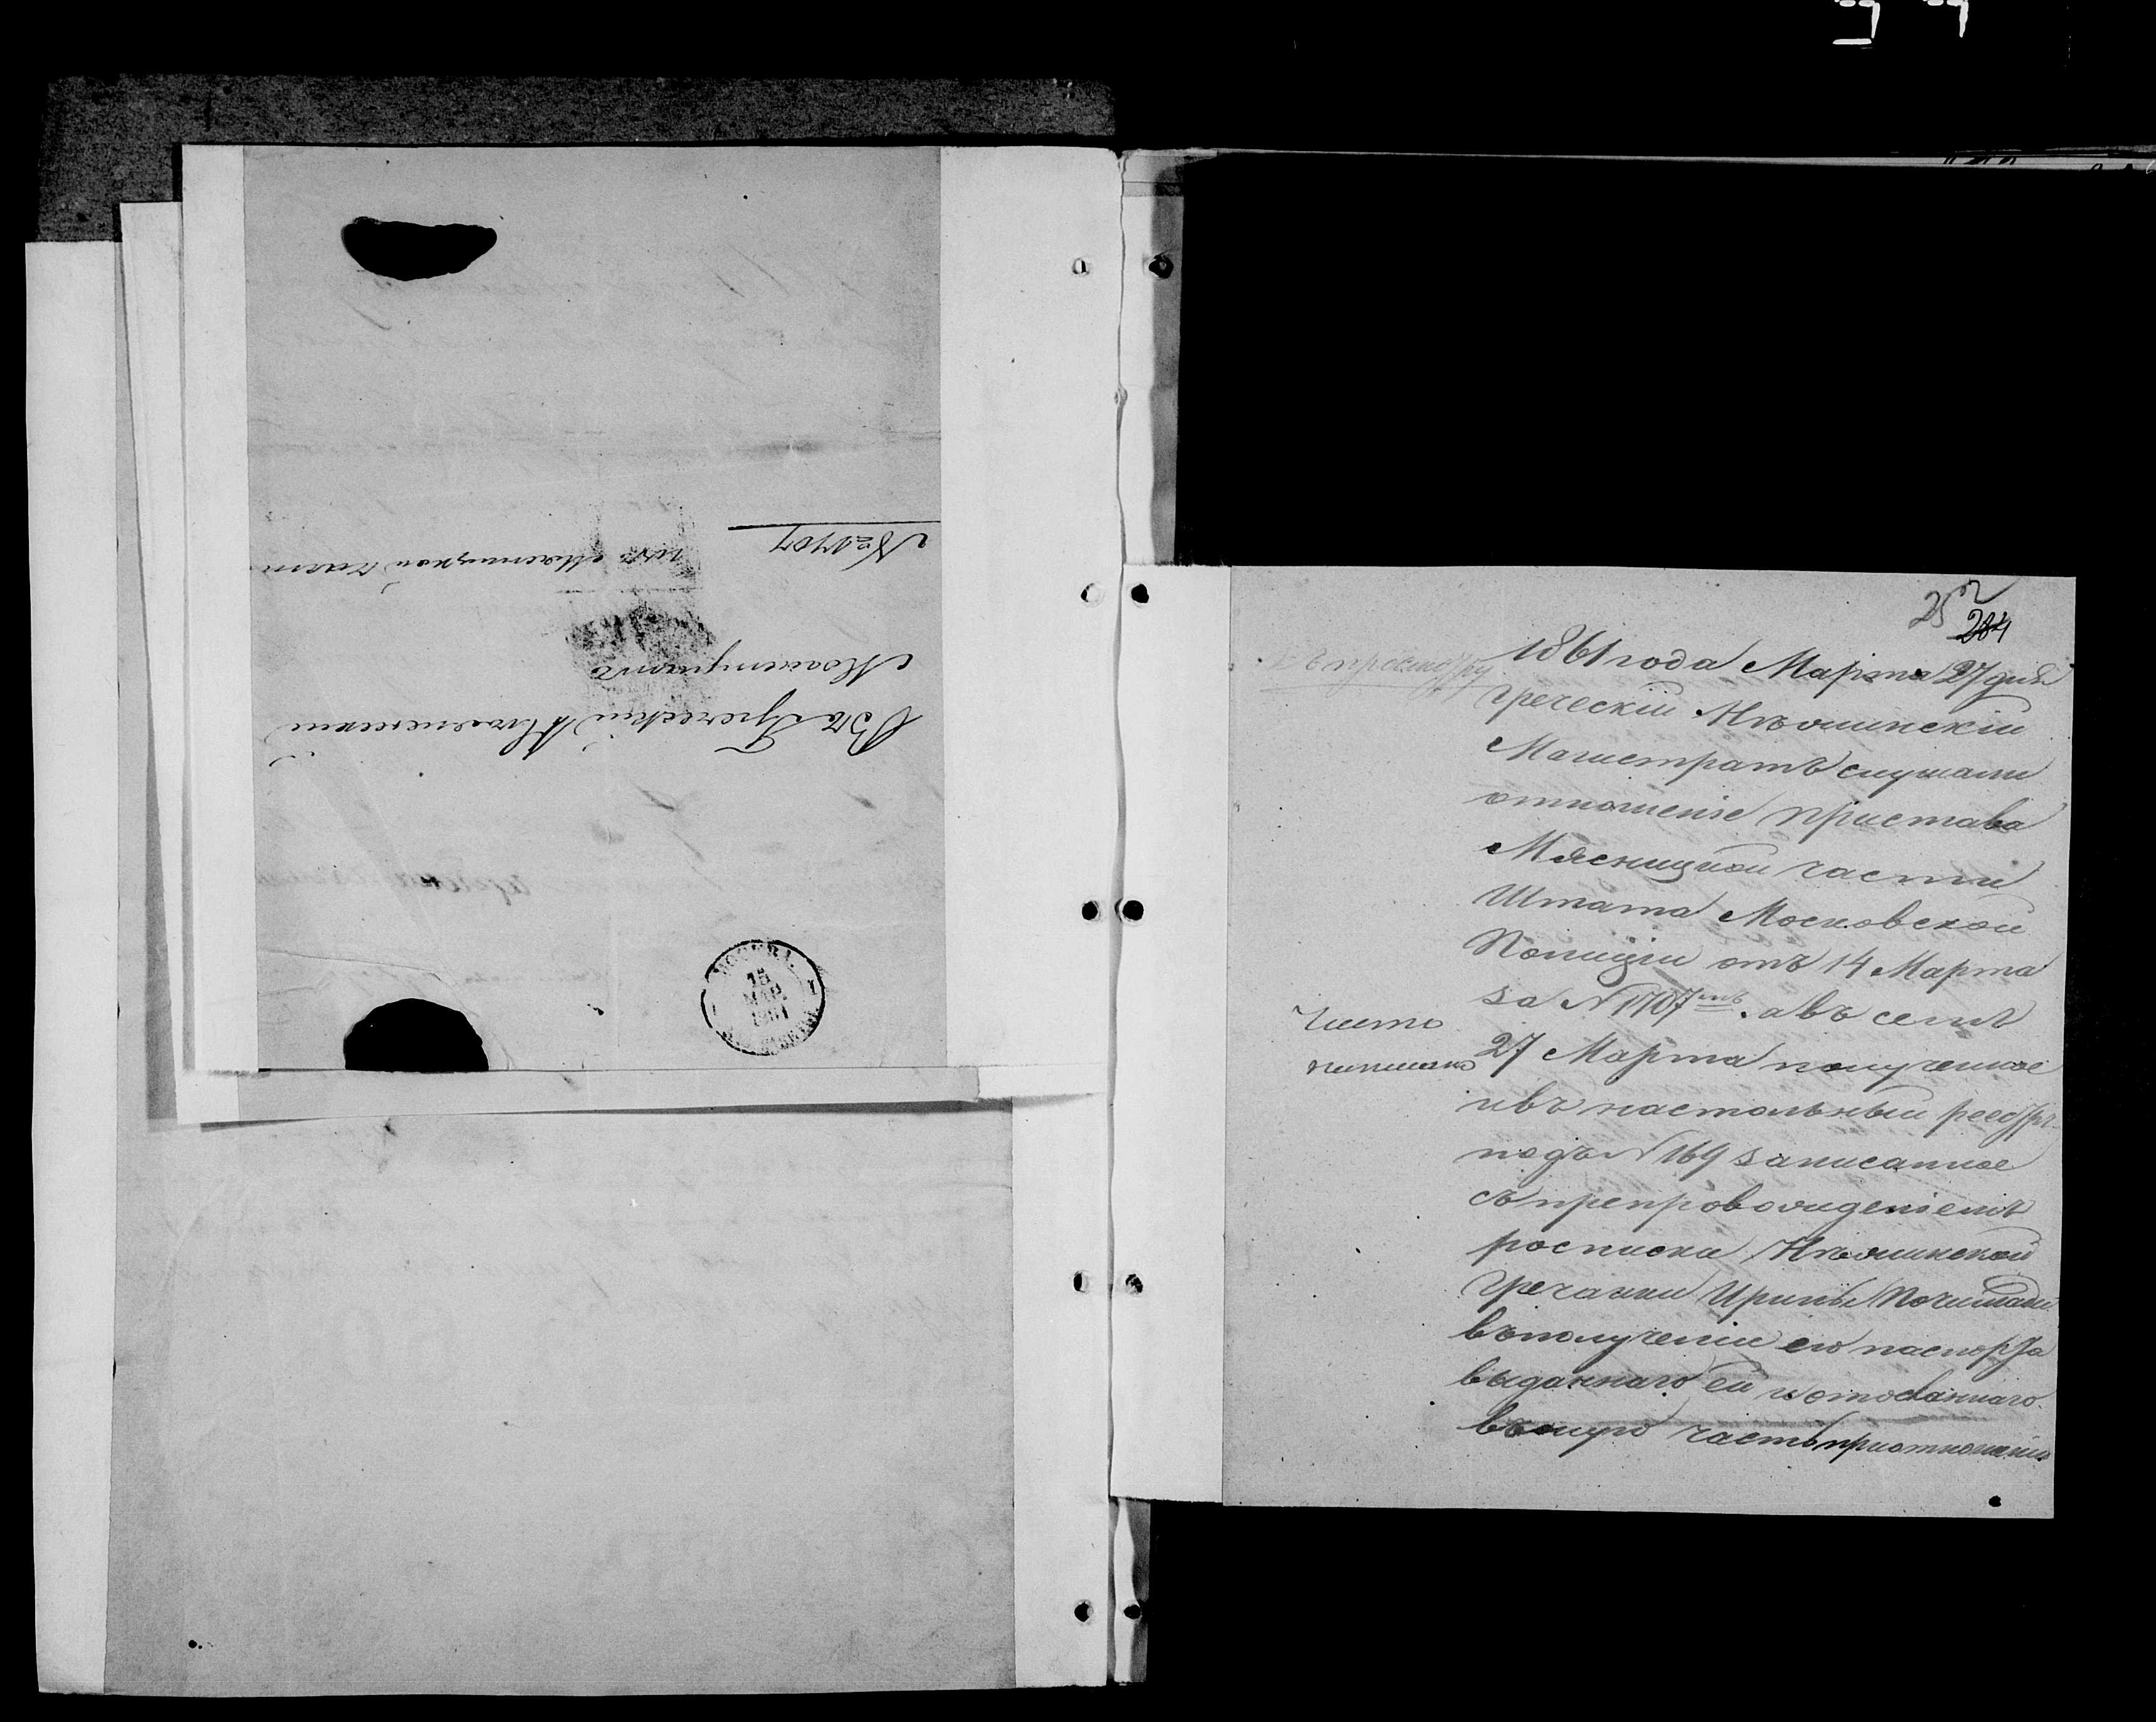 Въ Греческій Нѣжинскій
Магистратъ
изъ Мясницкой части
№ 1707
МОСКВА
МАР.
1861
25
284
1861 года Марта 27 дня
Греческій Нѣжинскій
Магистратъ слушали
отношеніе Пристава
Мясницкой части
Штата Московской
Полиціи отъ 14 Марта
за № 1707мъ. а въ семъ
27 Марта полученное
и въ настольный реестръ
подъ № 169 записанное
съ препровожденіемъ
росписки Нѣжинской
Гречанки Ирины
въ полученіи ею паспорта
выданнаго ей и отосланнаго
въ оную часть при отношеніи